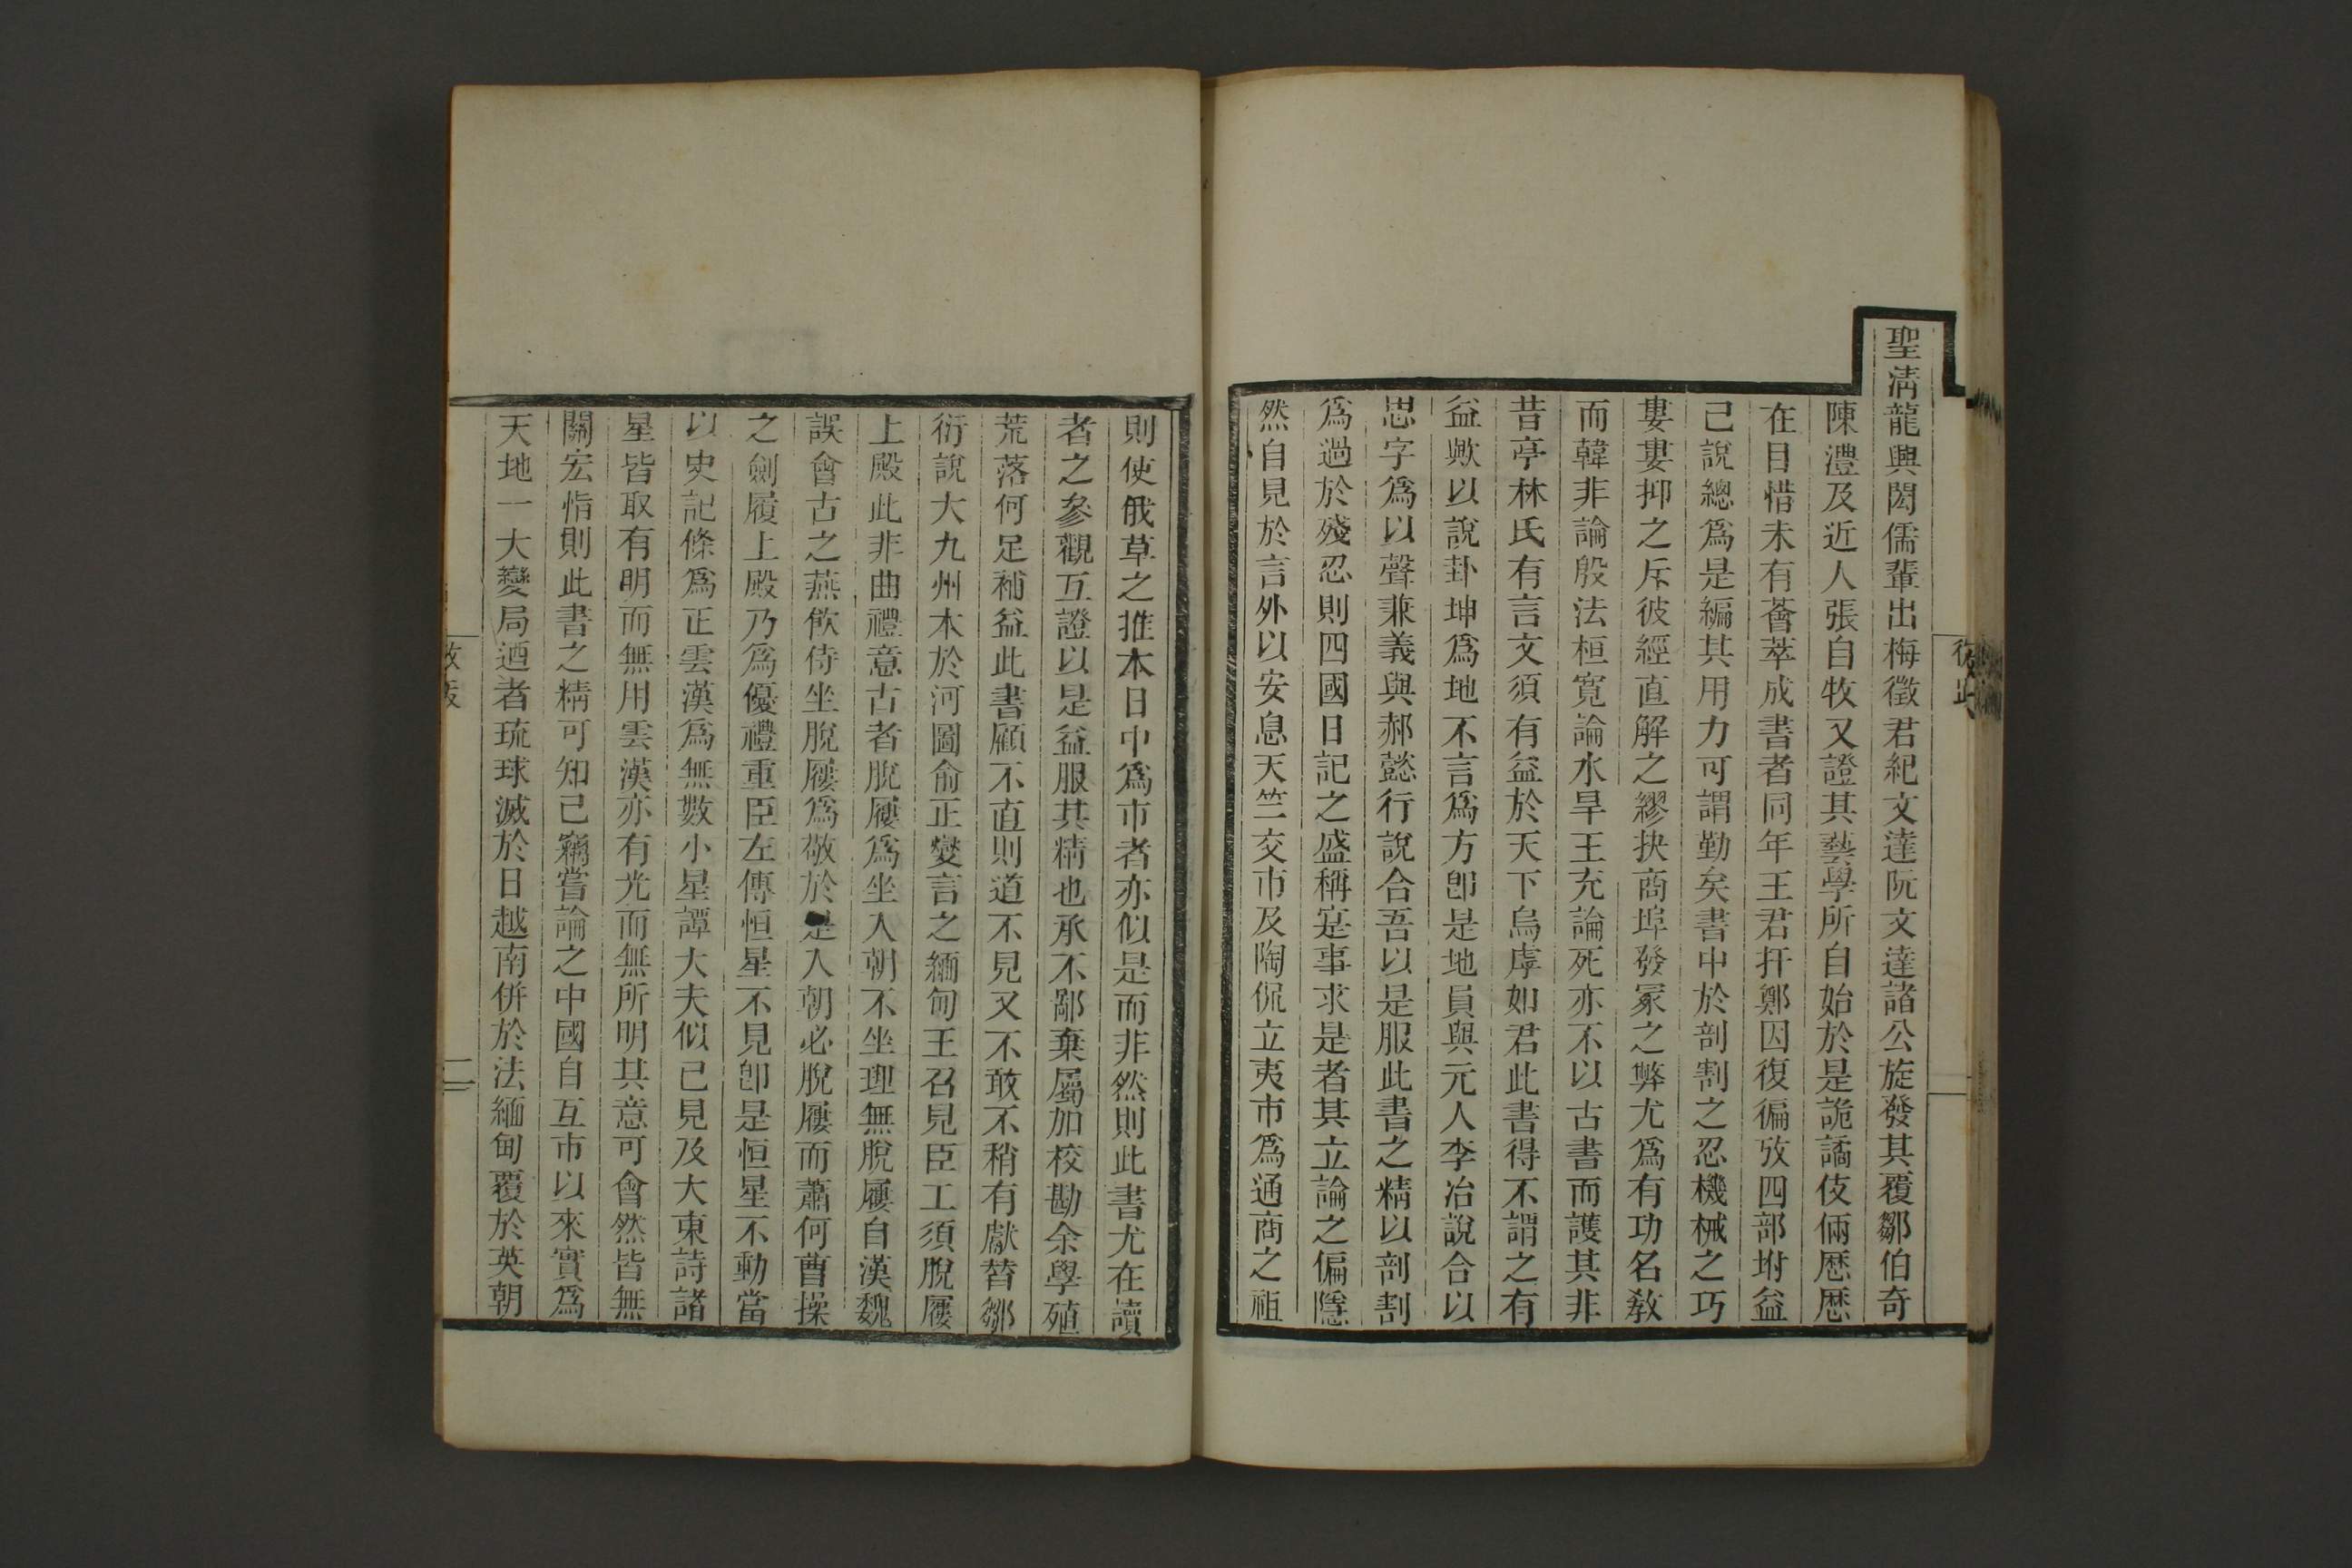 聖淸龍興閎儒輩出梅徵君紀文達阮文達諸公旋發其覆鄒伯奇
陳澧及近人張自牧又證其藝學所自始於是詭譎伎倆歷歷
在目惜未有薈萃成書者同年王君扞鄭因復徧攷四部坿益
己說總爲是編其用力可謂勤矣書中於剖割之忍機械之巧
婁婁抑之斥彼經直解之繆抉商埠發冢之弊尤爲有功名敎
而韓非論殷法桓寬論水旱王充論死亦不以古書而護其非
昔亭林氏有言文須有益於天下烏虖如君此書得不謂之有
益歟以說卦坤爲地不言爲方卽是地員與元人李冶說合以
思字爲以聲兼義與郝懿行說合吾以是服此書之精以剖割
爲過於殘忍則四國日記之盛稱寔事求是者其立論之偏隱
然自見於言外以安息天竺交市及陶侃立夷市爲通商之祖
則使俄草之推本日中爲市者亦似是而非然則此書尤在讀
者之參觀互證以是益服其精也承不鄙棄屬加校勘余學殖
荒落何足補益此書顧不直則道不見又不敢不稍有獻替鄒
衍說大九州本於河圖俞正燮言之緬甸王召見臣工須脫屨
上殿此非曲禮意古者脫屨爲坐入朝不坐理無脫屨自漢魏
誤會古之燕飲侍坐脫屨爲敬於是入朝必脫屨而蕭何曹操
之劍履上殿乃爲優禮重臣左傳恒星不見卽是恒星不動當
以史記條爲正雲漢爲無數小星譚大夫似已見及大東詩諸
星皆取有明而無用雲漢亦有光而無所明其意可會然皆無
關宏恉則此書之精可知已竊嘗論之中國自互市以來實爲
天地一大變局迺者琉球滅於日越南併於法緬甸覆於英朝
二